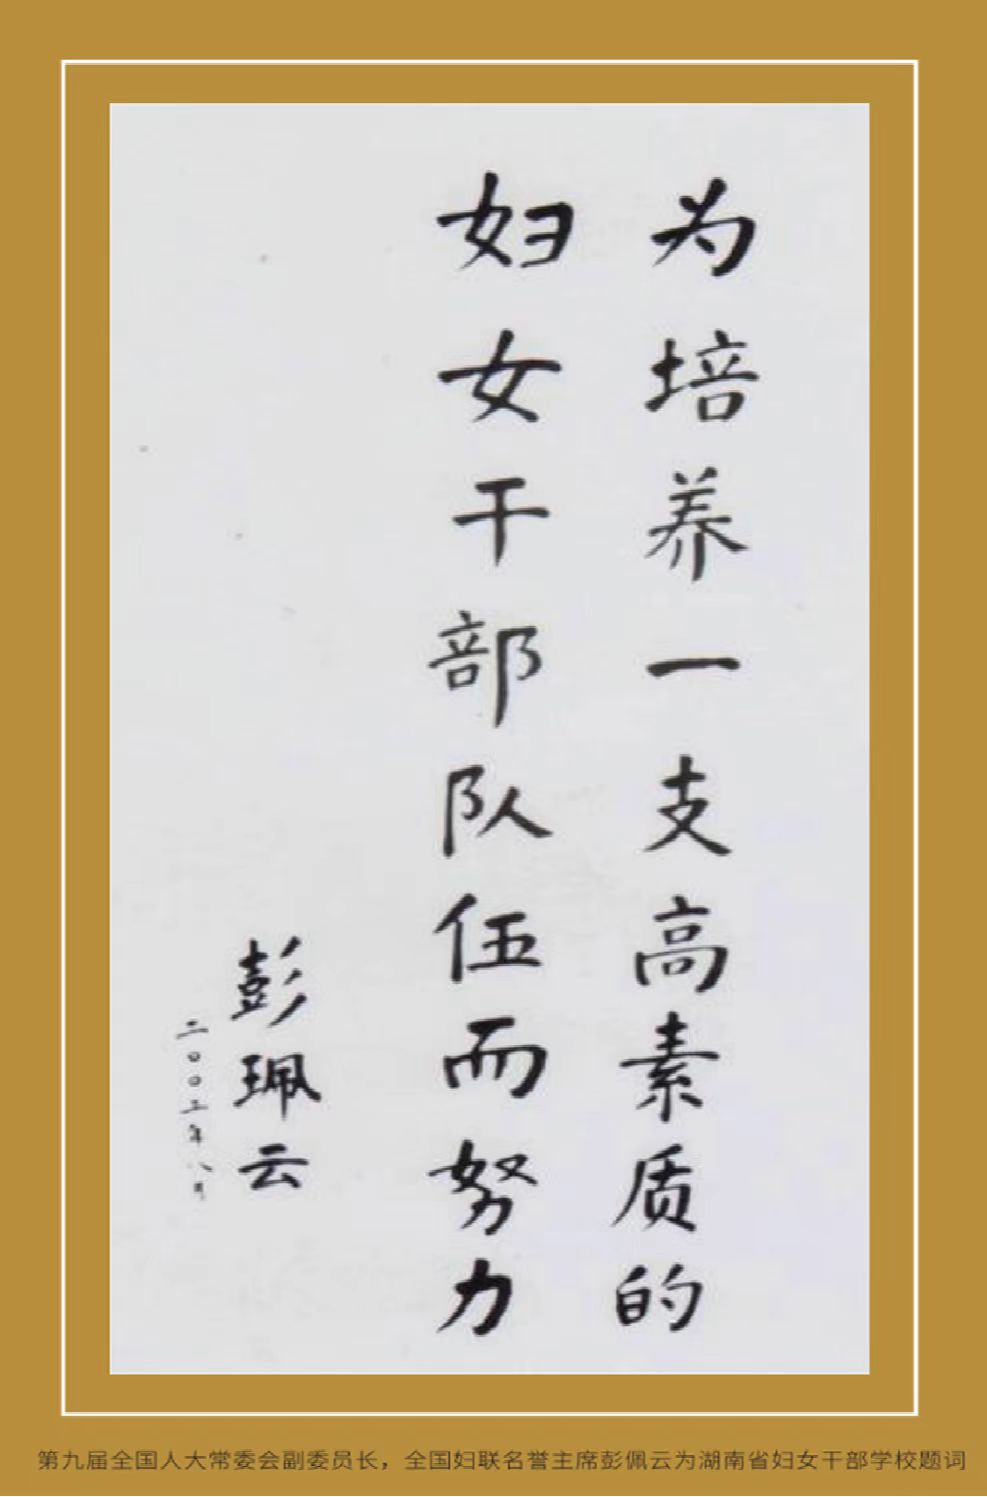 为培养一支高素质的
妇女干部队伍而努力
彭珮云
二〇〇二年八月
第九届全国人大常委会副委员长，全国妇联名誉主席彭佩云为湖南省妇女干部学校题词